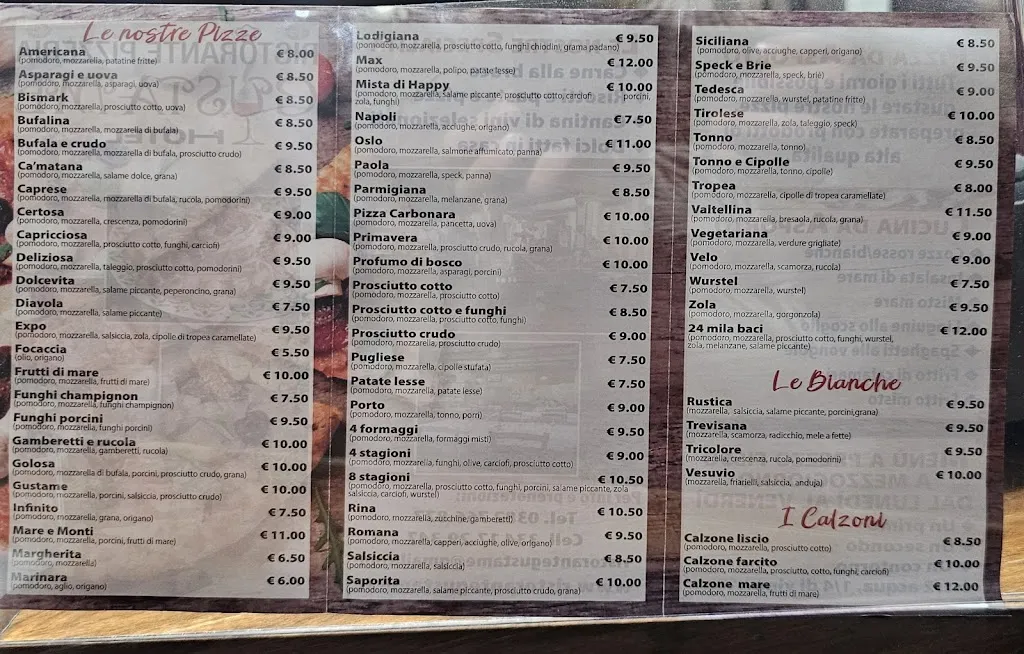 Le nostre Pizze
Americana € 8.00
(pomodoro, mozzarella, patatine fritte)
Asparagi e uova € 8.50
(pomodoro, mozzarella, asparagi, uova)
Bismark € 8.50
(pomodoro, mozzarella, prosciutto cotto, uova)
Bufalina € 8.50
(pomodoro, mozzarella, mozzarella di bufala)
Bufala e crudo € 9.50
(pomodoro, mozzarella, mozzarella di bufala, prosciutto crudo)
Ca'matana € 8.50
(pomodoro, mozzarella, salame dolce, grana)
Caprese € 9.50
(pomodoro, mozzarella, mozzarella di bufala, rucola, pomodorini)
Certosa € 9.00
(pomodoro, mozzarella, crescenza, pomodorini)
Capricciosa € 9.00
(pomodoro, mozzarella, prosciutto cotto, funghi, carciofi)
Deliziosa € 9.50
(pomodoro, mozzarella, taleggio, prosciutto cotto, pomodorini)
Dolcevita € 9.50
(pomodoro, mozzarella, salame piccante, peperoncino, grana)
Diavola € 7.50
(pomodoro, mozzarella, salame piccante)
Expo € 9.50
(pomodoro, mozzarella, salsiccia, zola, cipolle di tropea caramellate)
Focaccia € 5.50
(olio, origano)
Frutti di mare € 10.00
(pomodoro, mozzarella, frutti di mare)
Funghi champignon € 7.50
(pomodoro, mozzarella, funghi champignon)
Funghi porcini € 9.50
(pomodoro, mozzarella, funghi porcini)
Gamberetti e rucola € 10.00
(pomodoro, mozzarella, gamberetti, rucola)
Golosa € 10.00
(pomodoro, mozzarella di bufala, porcini, prosciutto crudo, grana)
Gustame € 10.00
(pomodoro, mozzarella, porcini, salsiccia, prosciutto crudo)
Infinito € 7.50
(pomodoro, mozzarella, grana, origano)
Mare e Monti € 11.00
(pomodoro, mozzarella, porcini, frutti di mare)
Margherita € 6.50
(pomodoro, mozzarella)
Marinara € 6.00
(pomodoro, aglio, origano)
Lodigiana € 9.50
(pomodoro, mozzarella, prosciutto cotto, funghi chiodini, grama padano)
Max € 12.00
(pomodoro, mozzarella, polipo, patate lesse)
Mista di Happy € 10.00
(pomodoro, mozzarella, salame piccante, prosciutto cotto, carciofi porcini,
zola, funghi)
Napoli € 7.50
(pomodoro, mozzarella, acciughe, origano)
Oslo € 11.00
(pomodoro, mozzarella, salmone affumicato, panna)
Paola € 9.50
(pomodoro, mozzarella, speck, panna)
Parmigiana € 8.50
(pomodoro, mozzarella, melanzane, grana)
Pizza Carbonara € 10.00
(pomodoro, mozzarella, pancetta, uova)
Primavera € 10.00
(pomodoro, mozzarella, prosciutto crudo, rucola, grana)
Profumo di bosco € 10.00
(pomodoro, mozzarella, asparagi, porcini)
Prosciutto cotto € 7.50
(pomodoro, mozzarella, prosciutto cotto)
Prosciutto cotto e funghi € 8.50
(pomodoro, mozzarella, prosciutto cotto, funghi)
Prosciutto crudo € 9.00
(pomodoro, mozzarella, prosciutto crudo)
Pugliese € 7.50
(pomodoro, mozzarella, cipolle stufata)
Patate lesse € 7.50
(pomodoro, mozzarella, patate lesse)
Porto € 9.00
(pomodoro, mozzarella, tonno, porri)
4 formaggi € 9.50
(pomodoro, mozzarella, formaggi misti)
4 stagioni € 9.00
(pomodoro, mozzarella, funghi, olive, carciofi, prosciutto cotto)
8 stagioni € 10.50
(pomodoro, mozzarella, prosciutto cotto, funghi, porcini, salame piccante, zola
salsiccia, carciofi, wurstel)
Rina € 10.50
(pomodoro, mozzarella, zucchine, gamberetti)
Romana € 9.50
(pomodoro, mozzarella, capperi, acciughe, olive, origano)
Salsiccia € 8.50
(pomodoro, mozzarella, salsiccia)
Saporita € 10.00
(pomodoro, mozzarella, salame piccante, prosciutto crudo, grana)
Siciliana € 8.50
(pomodoro, olive, acciughe, capperi, origano)
Speck e Brie € 9.50
(pomodoro, mozzarella, speck, briè)
Tedesca € 9.00
(pomodoro, mozzarella, wurstel, patatine fritte)
Tirolese € 10.00
(pomodoro, mozzarella, zola, taleggio, speck)
Tonno € 8.50
(pomodoro, mozzarella, tonno)
Tonno e Cipolle € 9.50
(pomodoro, mozzarella, tonno, cipolle)
Tropea € 8.00
(pomodoro, mozzarella, cipolle di tropea caramellate)
Valtellina € 11.50
(pomodoro, mozzarella, bresaola, rucola, grana)
Vegetariana € 9.00
(pomodoro, mozzarella, verdure grigliate)
Velo € 9.00
(pomodoro, mozzarella, scamorza, rucola)
Wurstel € 7.50
(pomodoro, mozzarella, wurstel)
Zola € 9.50
(pomodoro, mozzarella, gorgonzola)
24 mila baci € 12.00
(pomodoro, mozzarella, prosciutto cotto, funghi, wurstel,
zola, melanzane, salame piccante)
Le Bianche
Rustica € 9.50
(mozzarella, salsiccia, salame piccante, porcini,grana)
Trevisana € 9.50
(mozzarella, scamorza, radicchio, mele a fette)
Tricolore € 9.50
(mozzarella, crescenza, rucola, pomodorini)
Vesuvio € 10.00
(mozzarella, friarielli, salsiccia, anduja)
I Calzoni
Calzone liscio € 8.50
(pomodoro, mozzarella, prosciutto cotto)
Calzone farcito € 10.00
(pomodoro, mozzarella, prosciutto, cotto, funghi, carciofi)
Calzone mare € 12.00
(pomodoro, mozzarella, frutti di mare)